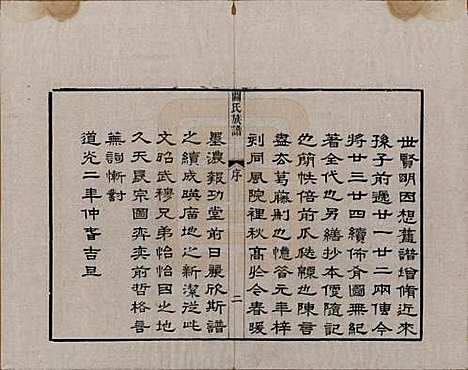 世賢明因想舊譜增脩近來
孫子前遞廿一廿二兩使今
將廿三廿四續佈脅圖無紀
著全代也另繕抄本便隨記
也簡帙倍前瓜瓞緜也陳書
盡太葛藤剐也憶昝元年梓
到同風院裡秋高於今春暖
關氏族譜
序
二
墨濃報功堂前日麗欣斯譜
之續成暎廣地之新潔從此
文昭武穆兄弟怡怡因之地
久天長宗圖奕奕前哲格言
蕪詞慚對
道光二年仲春吉旦